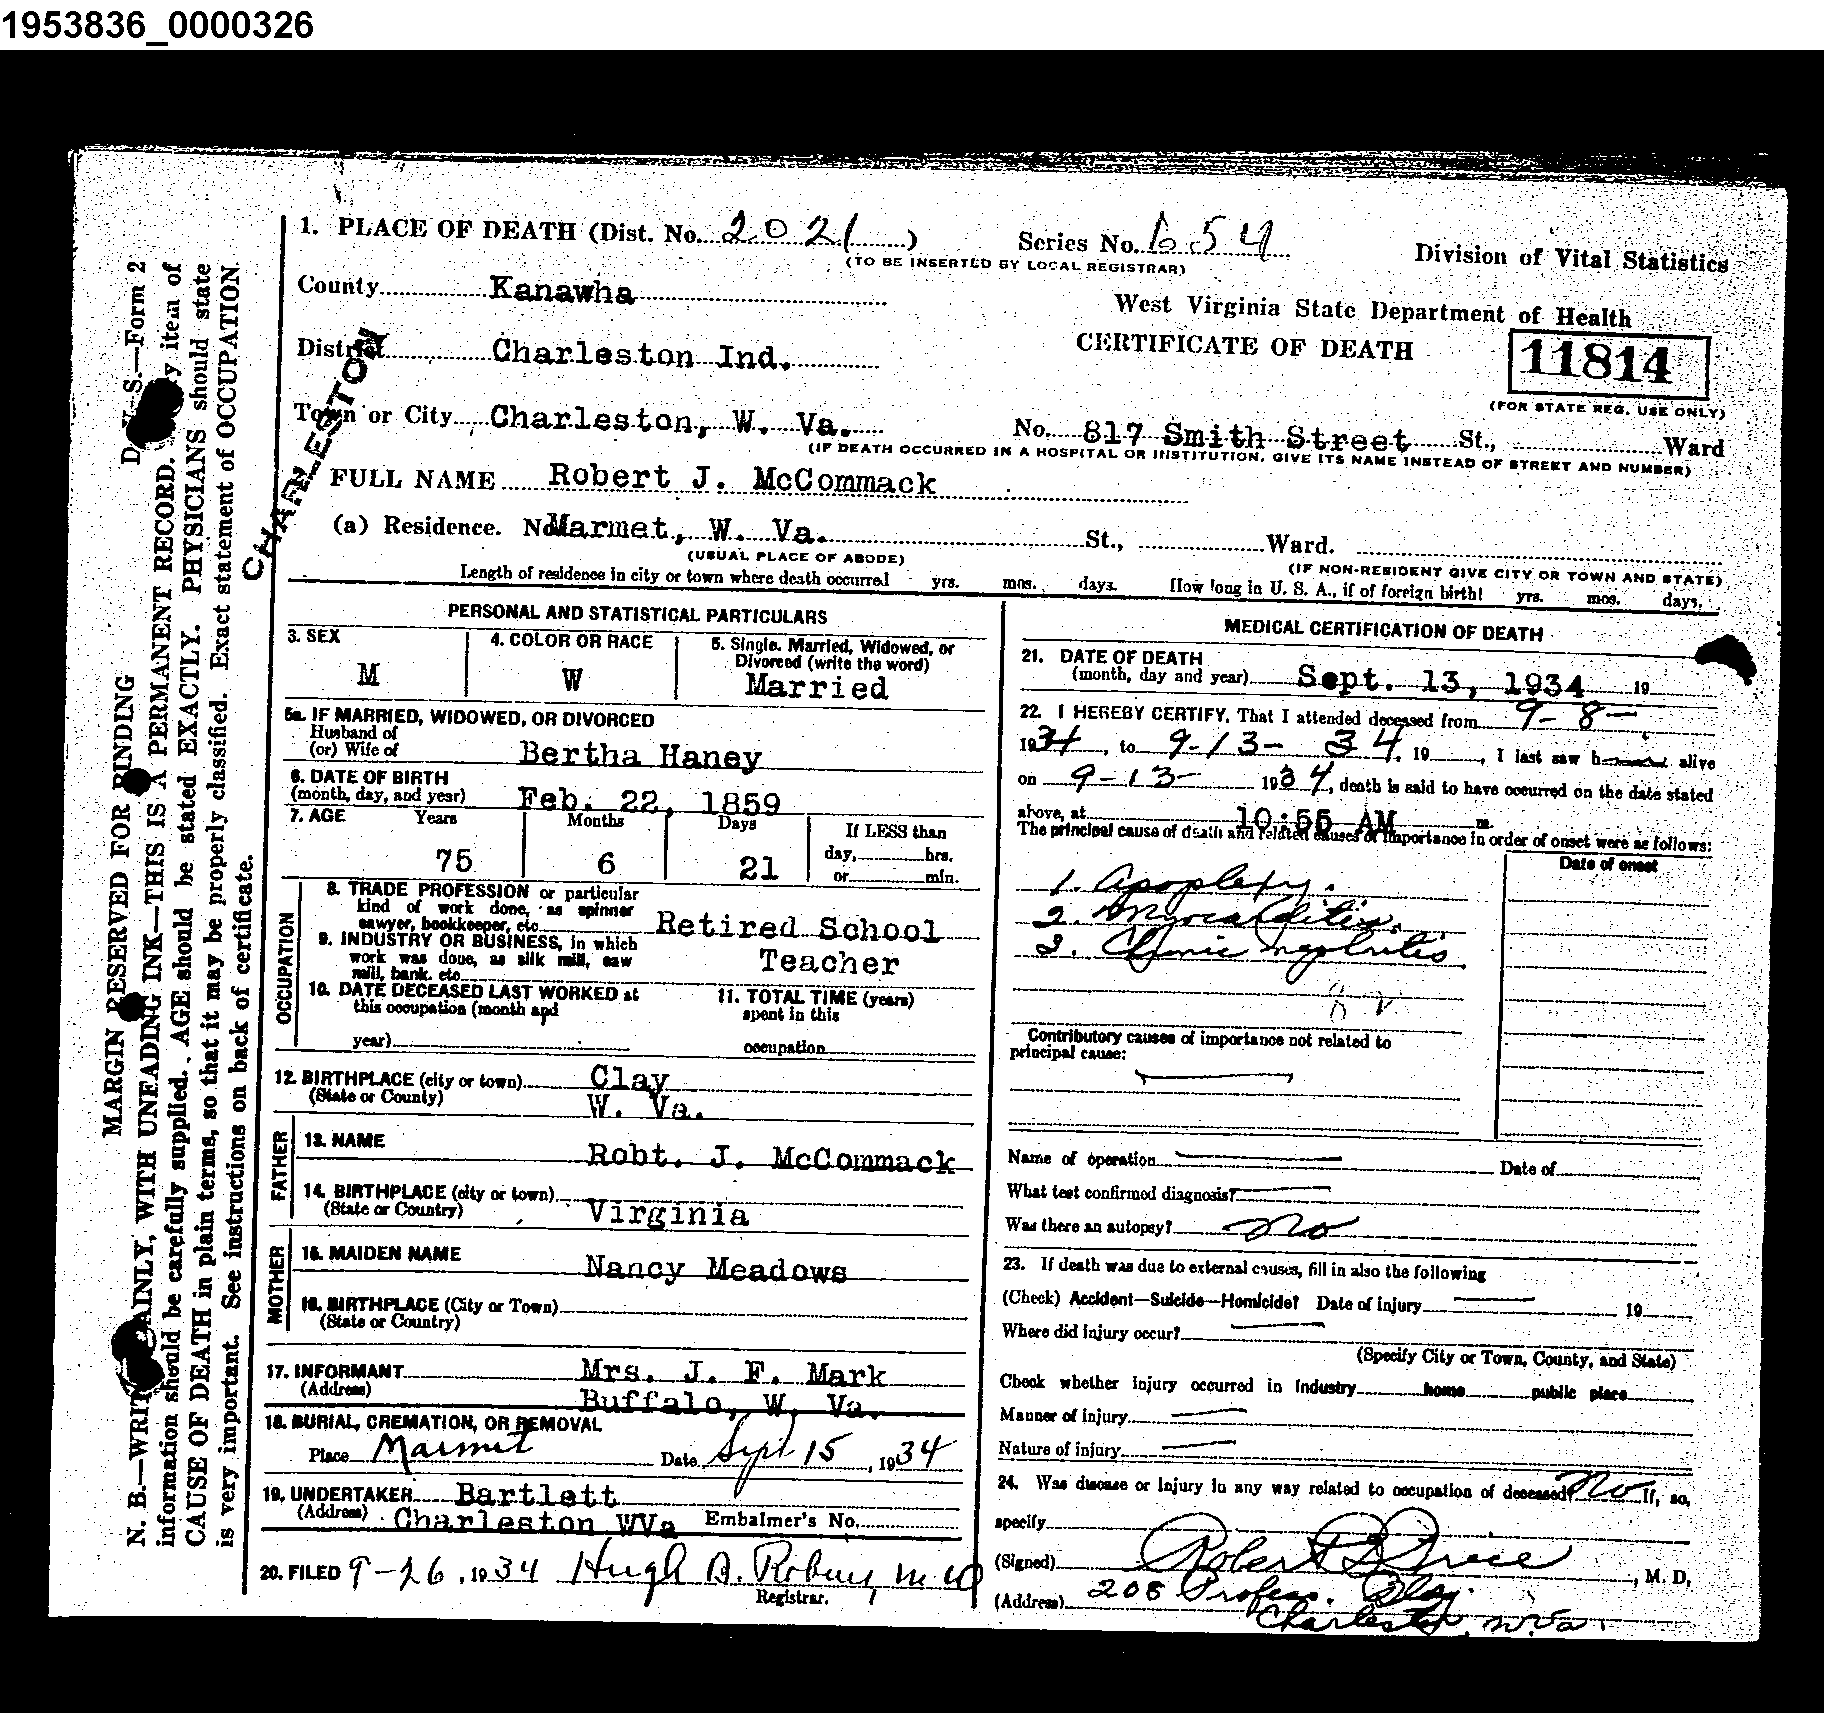 1953836_0000326
1. PLACE OF DEATH (Dist. No. 2021 )
Series No. 654
(TO BE INSERTED BY LOCAL REGISTRAR)
Division of Vital Statistics
County Kanawha
West Virginia State Department of Health
CERTIFICATE OF DEATH
11814
(FOR STATE REG. USE ONLY)
District Charleston Ind.
CHARLESTON
Town or City Charleston, W. Va. No. 817 Smith Street St., Ward
(IF DEATH OCCURRED IN A HOSPITAL OR INSTITUTION, GIVE ITS NAME INSTEAD OF STREET AND NUMBER)
FULL NAME Robert J. McCommack
(a) Residence. No. Marmet, W. Va. St., Ward.
(USUAL PLACE OF ABODE)
(IF NON-RESIDENT GIVE CITY OR TOWN AND STATE)
Length of residence in city or town where death occurred yrs. mos. days. How long in U. S. A., if of foreign birth? yrs. mos. days.
PERSONAL AND STATISTICAL PARTICULARS
3. SEX
M
4. COLOR OR RACE
W
5. Single, Married, Widowed, or
Divorced (write the word)
Married
5a. IF MARRIED, WIDOWED, OR DIVORCED
Husband of
(or) Wife of Bertha Haney
6. DATE OF BIRTH
(month, day, and year) Feb. 22, 1859
7. AGE Years Months Days If LESS than
75 6 21 day, hrs.
or min.
OCCUPATION
8. TRADE PROFESSION or particular
kind of work done, as spinner
sawyer, bookkeeper, etc. Retired School
9. INDUSTRY OR BUSINESS, in which
work was done, as silk mill, saw
mill, bank, etc. Teacher
10. DATE DECEASED LAST WORKED at
this occupation (month and
year)
11. TOTAL TIME (years)
spent in this
occupation
12. BIRTHPLACE (city or town) Clay
(State or County) W. Va.
FATHER
13. NAME Robt. J. McCommack
14. BIRTHPLACE (city or town)
(State or Country) Virginia
MOTHER
15. MAIDEN NAME Nancy Meadows
16. BIRTHPLACE (City or Town)
(State or Country)
17. INFORMANT Mrs. J. F. Mark
(Address) Buffalo, W. Va.
18. BURIAL, CREMATION, OR REMOVAL
Place Marmet Date Sept 15, 1934
19. UNDERTAKER Bartlett
(Address) Charleston WVa Embalmer's No.
20. FILED 9-26, 1934 Hugh B. Robins, M.D.
Registrar.
MEDICAL CERTIFICATION OF DEATH
21. DATE OF DEATH
(month, day and year) Sept. 13, 1934 19
22. I HEREBY CERTIFY, That I attended deceased from 9-8-
1934, to 9-13- 34, 19 , I last saw h alive
on 9-13- 1934, death is said to have occurred on the date stated
above, at 10:55 AM m.
The principal cause of death and related causes of importance in order of onset were as follows:
Date of onset
1. Apoplexy.
2. Myocarditis.
3. Chronic nephritis
82
Contributory causes of importance not related to
principal cause:
Name of operation Date of
What test confirmed diagnosis?
Was there an autopsy? no
23. If death was due to external causes, fill in also the following
(Check) Accident—Suicide—Homicide? Date of injury 19
Where did injury occur?
(Specify City or Town, County, and State)
Check whether injury occurred in industry home public place
Manner of injury
Nature of injury
24. Was disease or injury in any way related to occupation of deceased? No If, so,
specify
(Signed) Robert B. Price, M. D,
(Address) 208 Profess. Bldg.
Charleston, W.Va.
D. V. S.—Form 2
MARGIN RESERVED FOR BINDING
N. B.—WRITE PLAINLY, WITH UNFADING INK—THIS IS A PERMANENT RECORD. Every item of
information should be carefully supplied. AGE should be stated EXACTLY. PHYSICIANS should state
CAUSE OF DEATH in plain terms, so that it may be properly classified. Exact statement of OCCUPATION
is very important. See instructions on back of certificate.